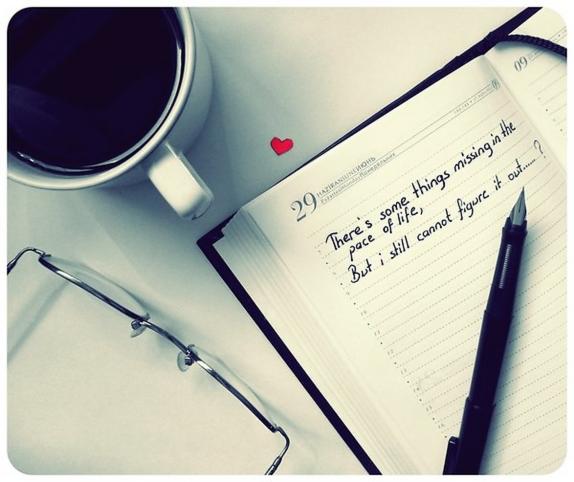 29 HAZİRAN/JUNE/ИЮНЬ
09
There's some things missing in the
pace of life,
But i still cannot figure it out......?